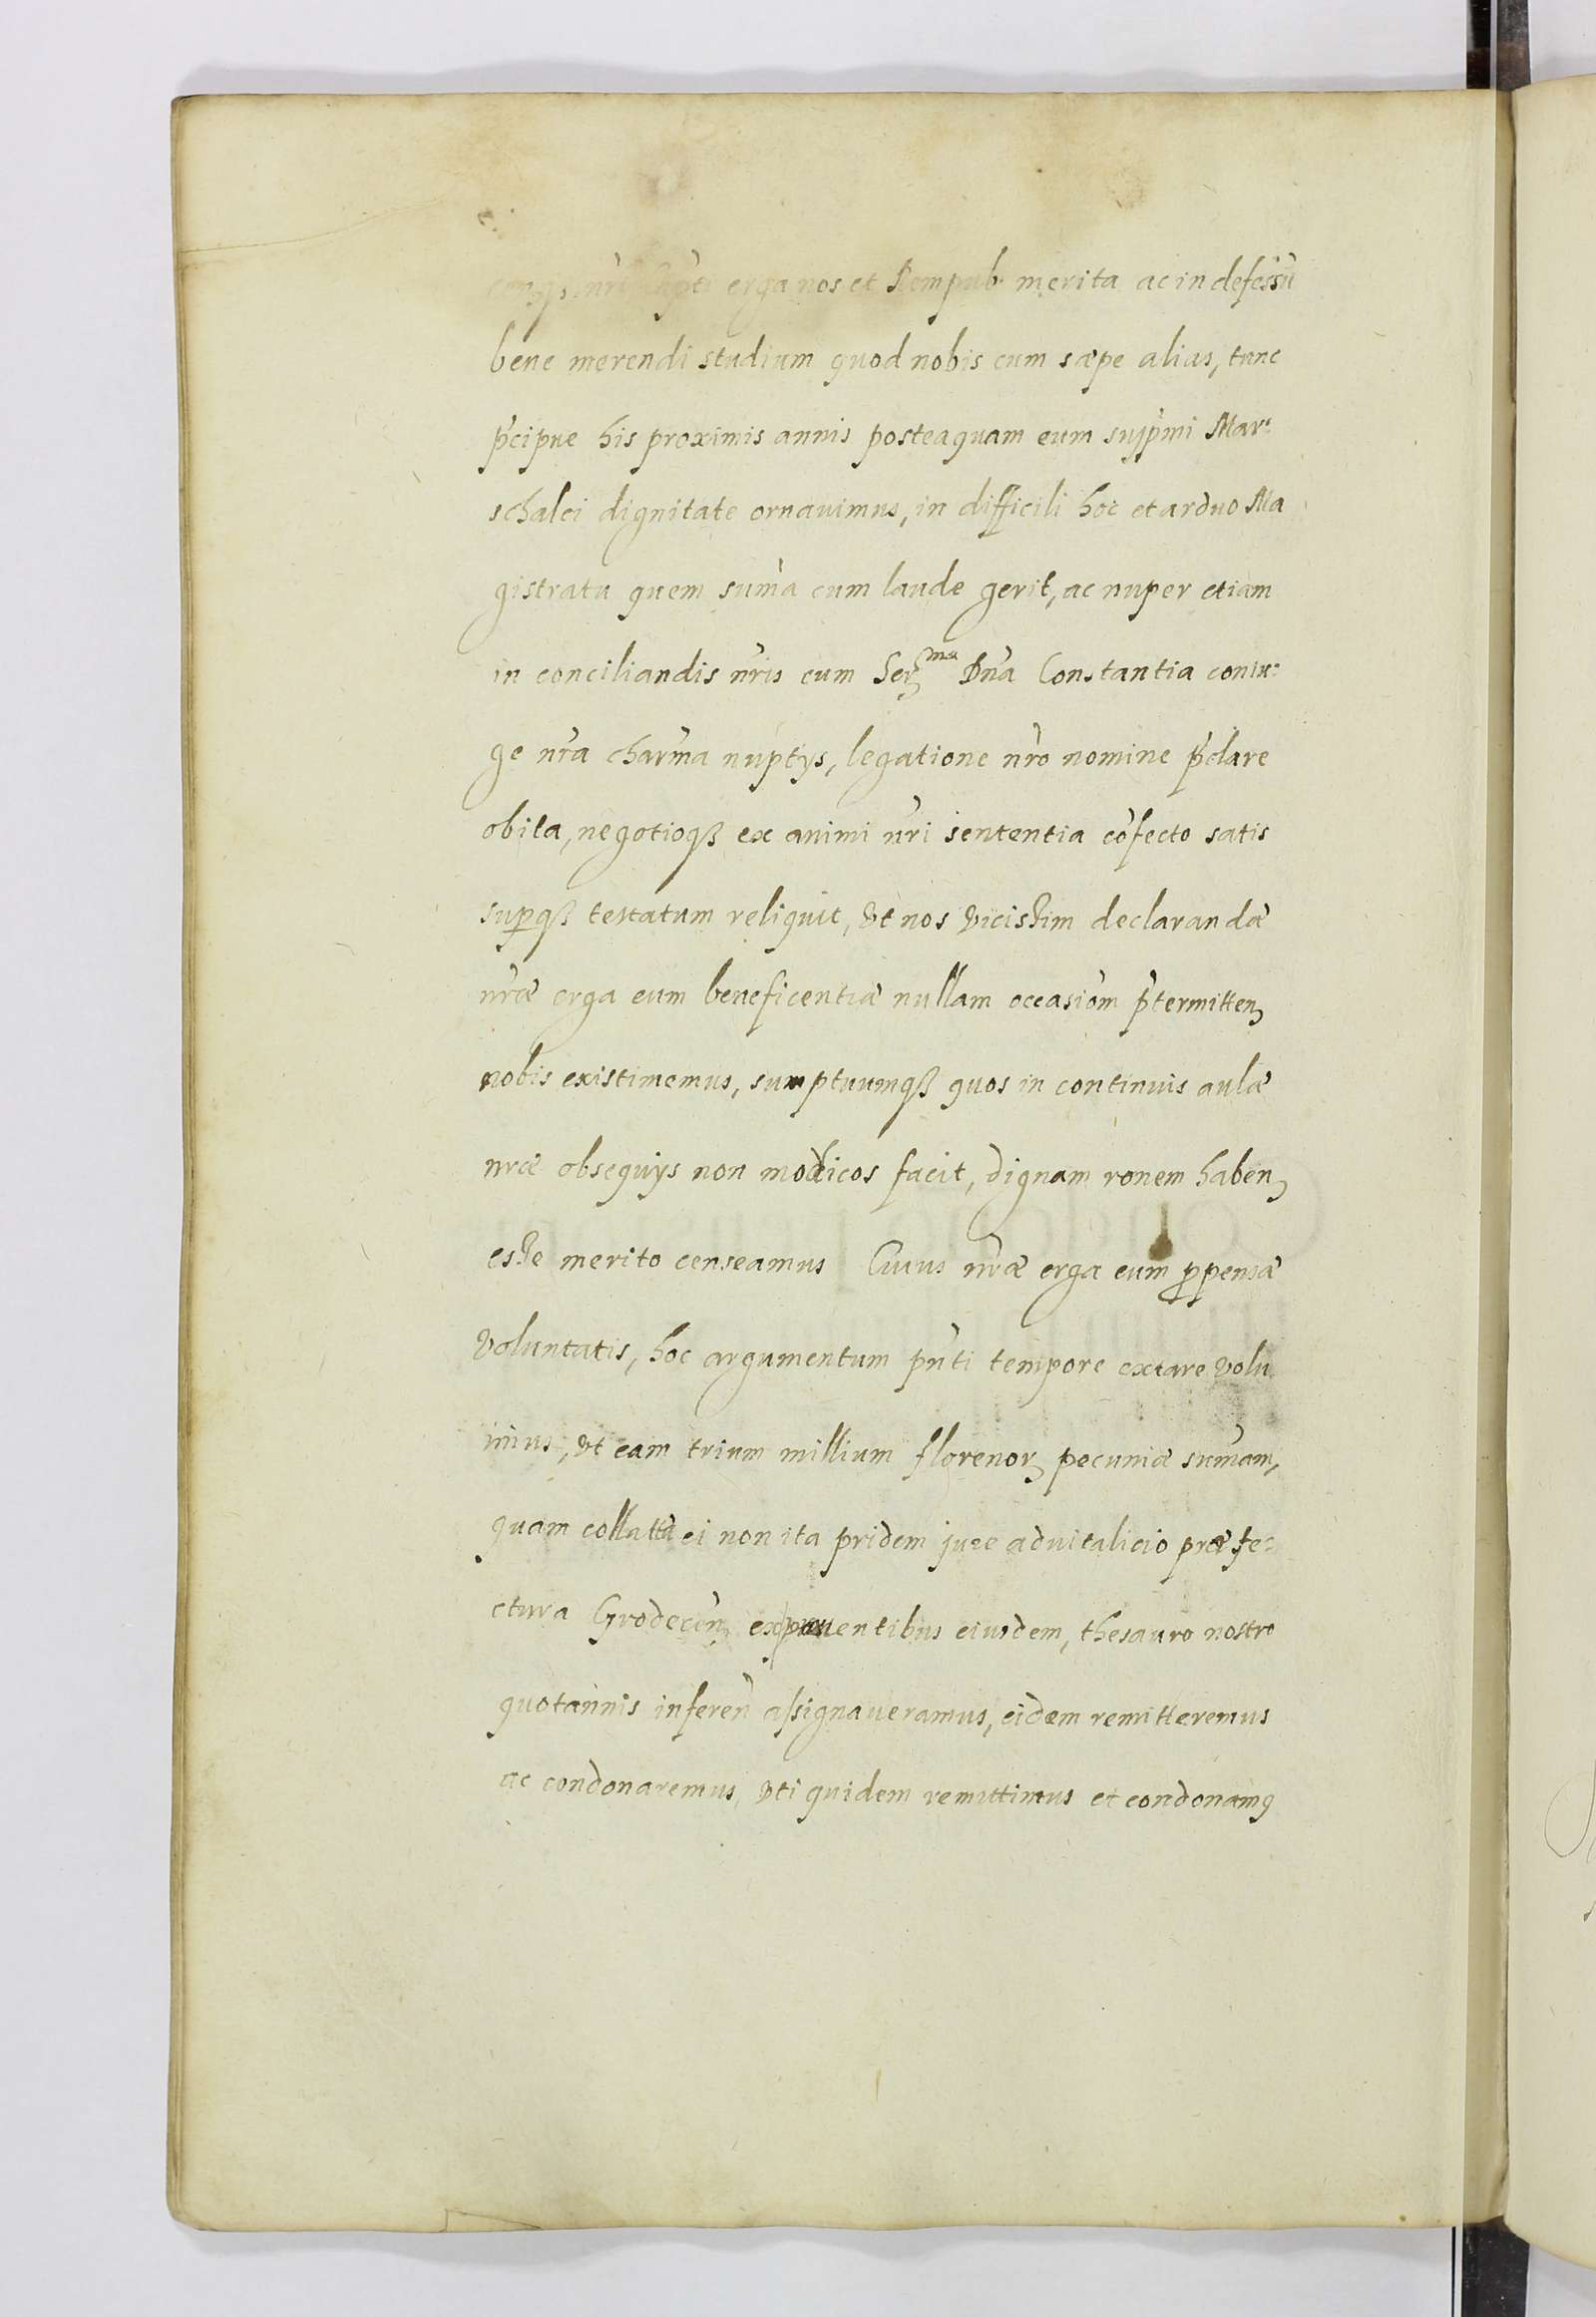 erga nos et Rempub. merita ac indefessū
bene merendi studium quod nobis cum sæpe alias, tunc
p̄cipue his proximis annis posteaquam eum sup̄mi Mar:
schalci dignitate ornauimus, in difficili hoc et arduo Ma
gistratu quem sum̄a cum laude gerit, ac nuper etiam
in conciliandis nr̄is cum Ser^ma Dn̄a Constantia coniu:
ge nr̄a char̄ma nuptys, legatione nr̄o nomine p̄clare
obita, negotioqꝫ ex animi nr̄i sententia cōfecto satis
suꝑqꝫ testatum reliquit, vt nos vicissim declarandæ
nr̄æ erga eum beneficentiæ nullam occasiōm p̄termitten
nobis existimemus, sumptuumqꝫ quos in continuis aulæ
nr̄æ obsequys non modicos facit, dignam ronem haben
esse merito censeamus Cuius nr̄æ erga eum ꝓpensæ
voluntatis, hoc argumentum pn̄ti tempore extare volu
imus, vt eam trium millium florenor pecuniæ sum̄am,
quam collatā ei non ita pridem jure aduitalicio præfe:
ctura Grodecen̄ ex prouentibus eiusdem, thesauro nostro
quotannis inferen̄ assignaueramus, eidem remitteremus
ac condonaremus, vti quidem remittimus et condonamꝰ